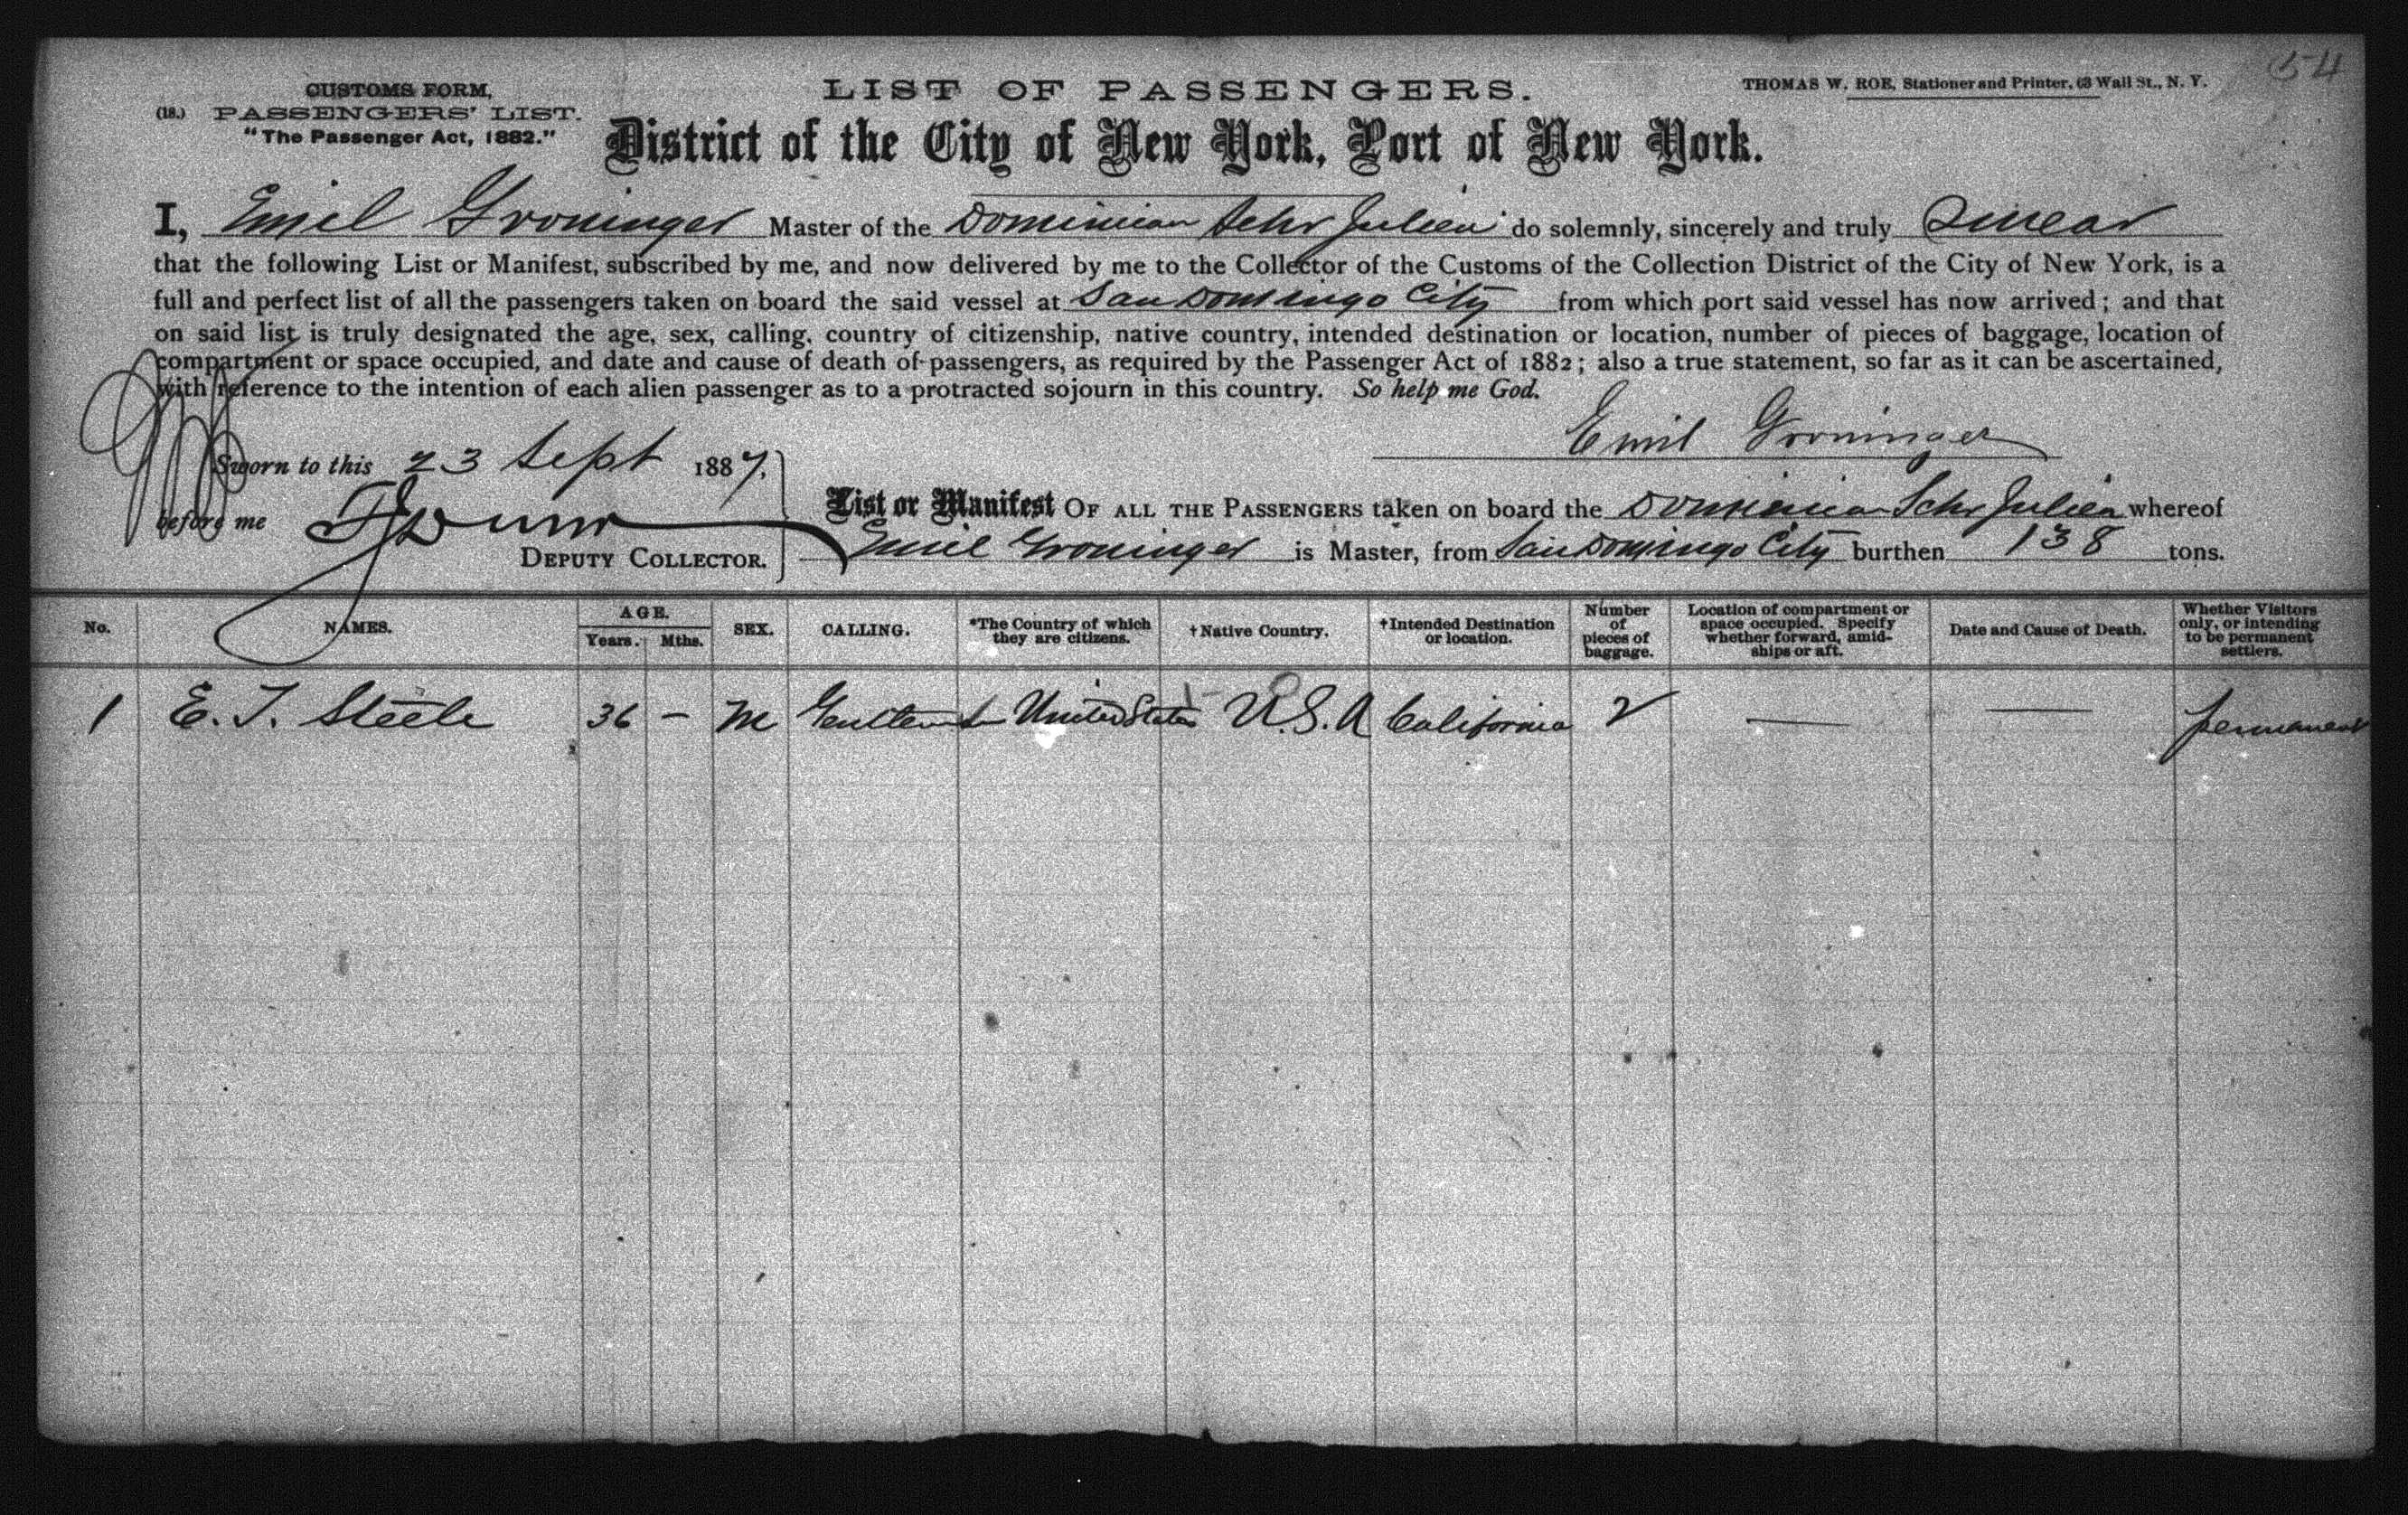 54
CUSTOMS FORM,
(18.) PASSENGERS' LIST.
"The Passenger Act, 1882."
LIST OF PASSENGERS.
THOMAS W. ROE, Stationer and Printer, 63 Wall St., N. Y.
District of the City of New York, Port of New York.
I, Emil Groninger Master of the Dominican Schr Julien do solemnly, sincerely and truly swear
that the following List or Manifest, subscribed by me, and now delivered by me to the Collector of the Customs of the Collection District of the City of New York, is a
full and perfect list of all the passengers taken on board the said vessel at San Domingo City from which port said vessel has now arrived; and that
on said list is truly designated the age, sex, calling, country of citizenship, native country, intended destination or location, number of pieces of baggage, location of
compartment or space occupied, and date and cause of death of passengers, as required by the Passenger Act of 1882; also a true statement, so far as it can be ascertained,
with reference to the intention of each alien passenger as to a protracted sojourn in this country. So help me God.
Emil Groninger
Sworn to this 23 Sept 1887,
before me
DEPUTY COLLECTOR.
List or Manifest OF ALL THE PASSENGERS taken on board the Dominican Schr Julien whereof
Emil Groninger is Master, from San Domingo City burthen 138 tons.
No. NAMES. AGE. Years. Mths. SEX. CALLING. *The Country of which they are citizens. †Native Country. †Intended Destination or location. Number of pieces of baggage. Location of compartment or space occupied. Specify whether forward, amidships or aft. Date and Cause of Death. Whether Visitors only, or intending to be permanent settlers.
1 E. T. Steele 36 – M Gentleman United States U.S.A California 2 — — permanent